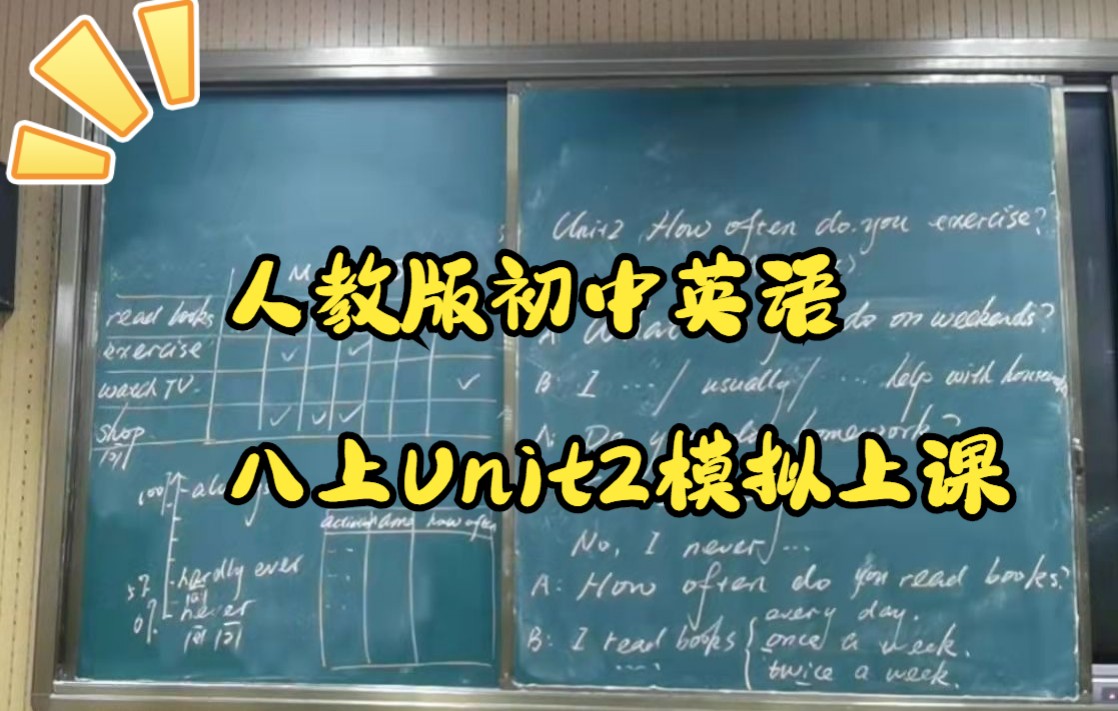 人教版初中英语
八上Unit2模拟上课
read books
exercise
watch TV
shop
always
hardly ever
never
how often
Unit2 How often do you exercise?
do on weekends?
B: I ... / usually / ... help with
homework?
No, I never ...
A: How often do you read books?
B: I read books
every day.
once a week.
twice a week.